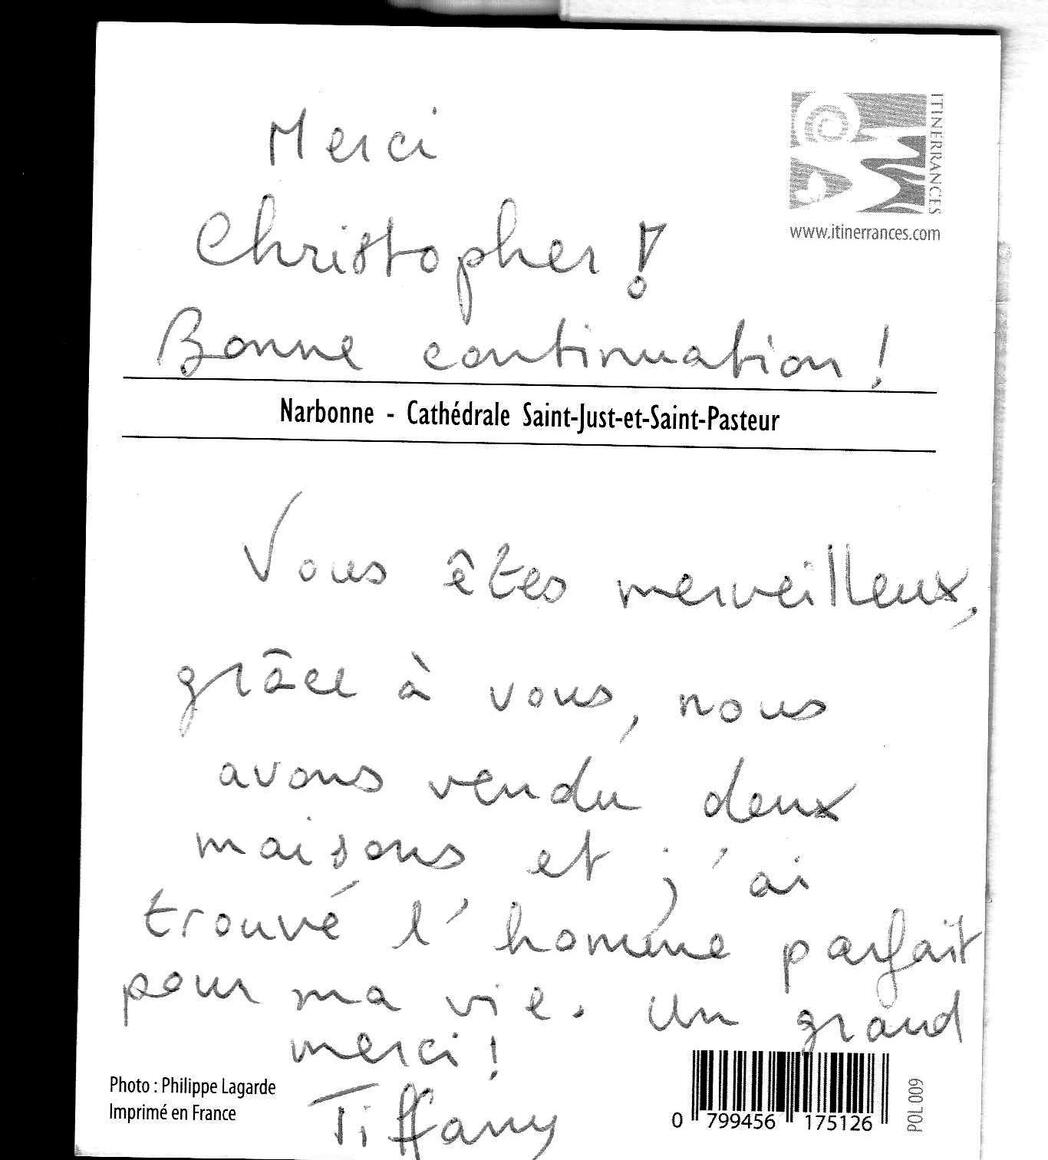 Merci
Christopher !
Bonne continuation !
ITINERRANCES
www.itinerrances.com
Narbonne - Cathédrale Saint-Just-et-Saint-Pasteur
Vous êtes merveilleux,
grâce à vous, nous
avons vendu deux
maisons et j'ai
trouvé l'homme parfait
pour ma vie. Un grand
merci !
Tiffany
Photo : Philippe Lagarde
Imprimé en France
0 799456 175126
POL 009